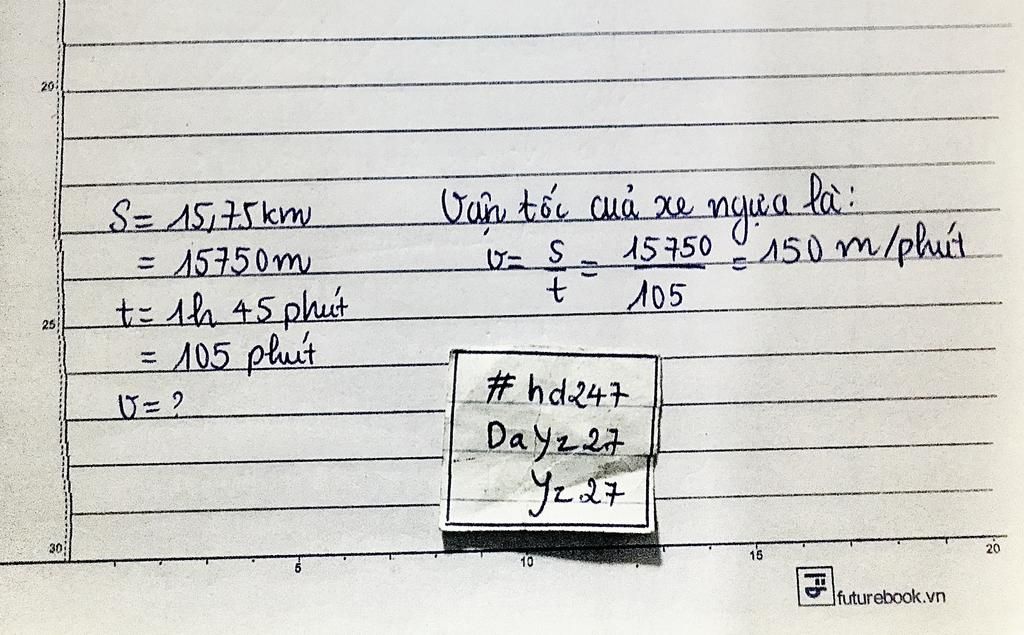 20
S = 15,75 km
= 15750 m
t = 1h 45 phút
= 105 phút
v = ?
Vận tốc cuả xe ngựa là:
v = S/t = 15750/105 = 150 m/phút
25
# hd247
Dayz27
Yz27
30
5
10
15
20
futurebook.vn